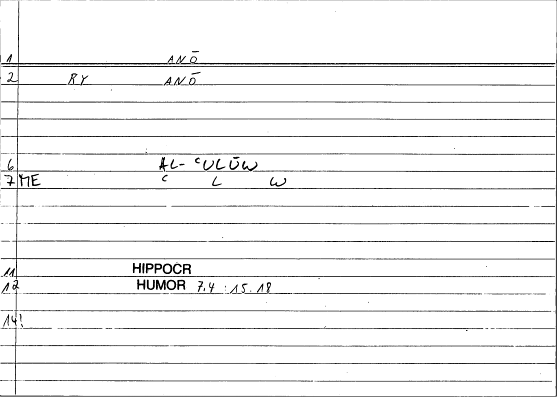 1 ANŌ
2 RY ANŌ
6 AL- ʿULŪW
7 ME ʿ L W
11 HIPPOCR
12 HUMOR 7.4 15.18
14!